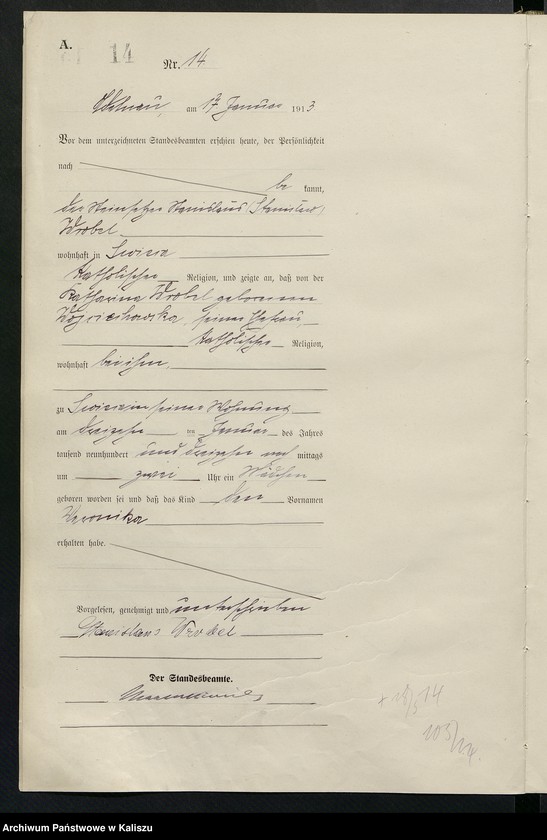 A.
14
Nr. 14
am 17 Januar 1913
Vor dem unterzeichneten Standesbeamten erschien heute, der Persönlichkeit
nach
be kannt,
der Steinsetzer Stanislaus (Stanislaw)
Wrobel
wohnhaft in
katholischer Religion, und zeigte an, daß von der
Katharina Wrobel geborenen
Wojciechowska, seiner Ehefrau,
katholischer Religion,
wohnhaft bei ihm,
zu in seiner Wohnung
am im Januar des Jahres
tausend neunhundert und dreizehn nach mittags
um zwei Uhr ein Mädchen
geboren worden sei und daß das Kind den Vornamen
Veronika
erhalten habe.
Vorgelesen, genehmigt und unterschrieben
Stanislaus Wrobel
Der Standesbeamte.
103/14.
Archiwum Państwowe w Kaliszu